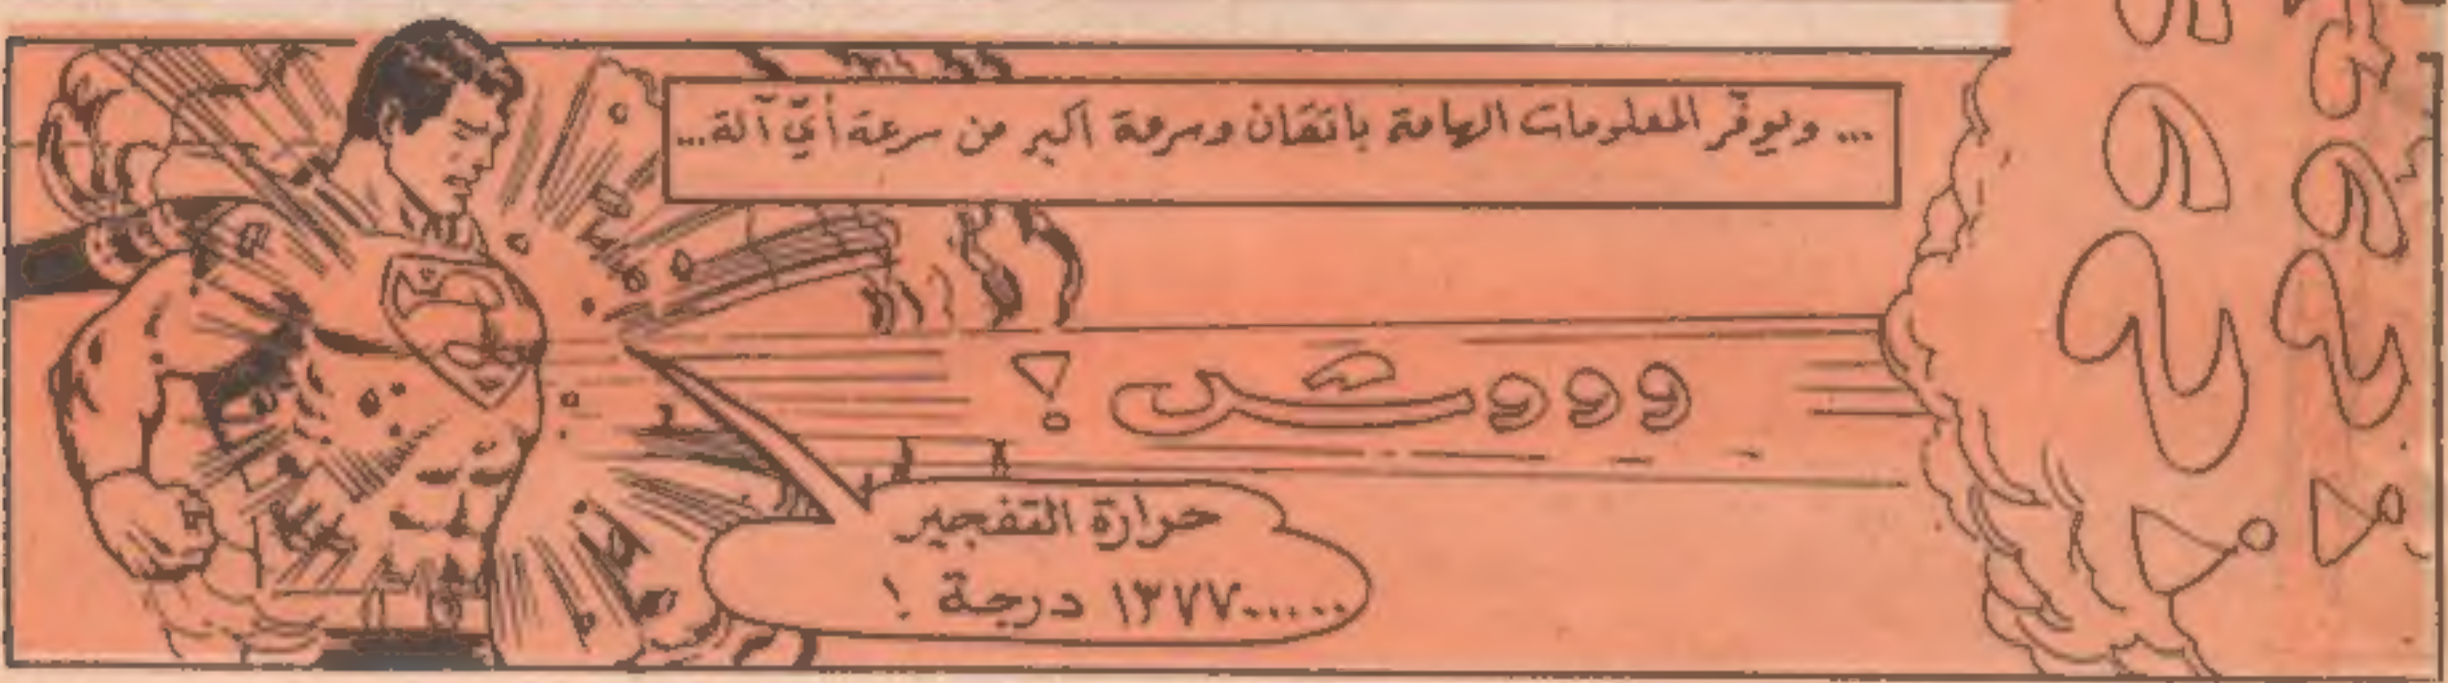 ... ويوفّر المعلومات الهامة باتقان وسرعة اكبر من سرعة أيّ آلة...
وووش !
حرارة التفجير
١٣٧٧..... درجة !